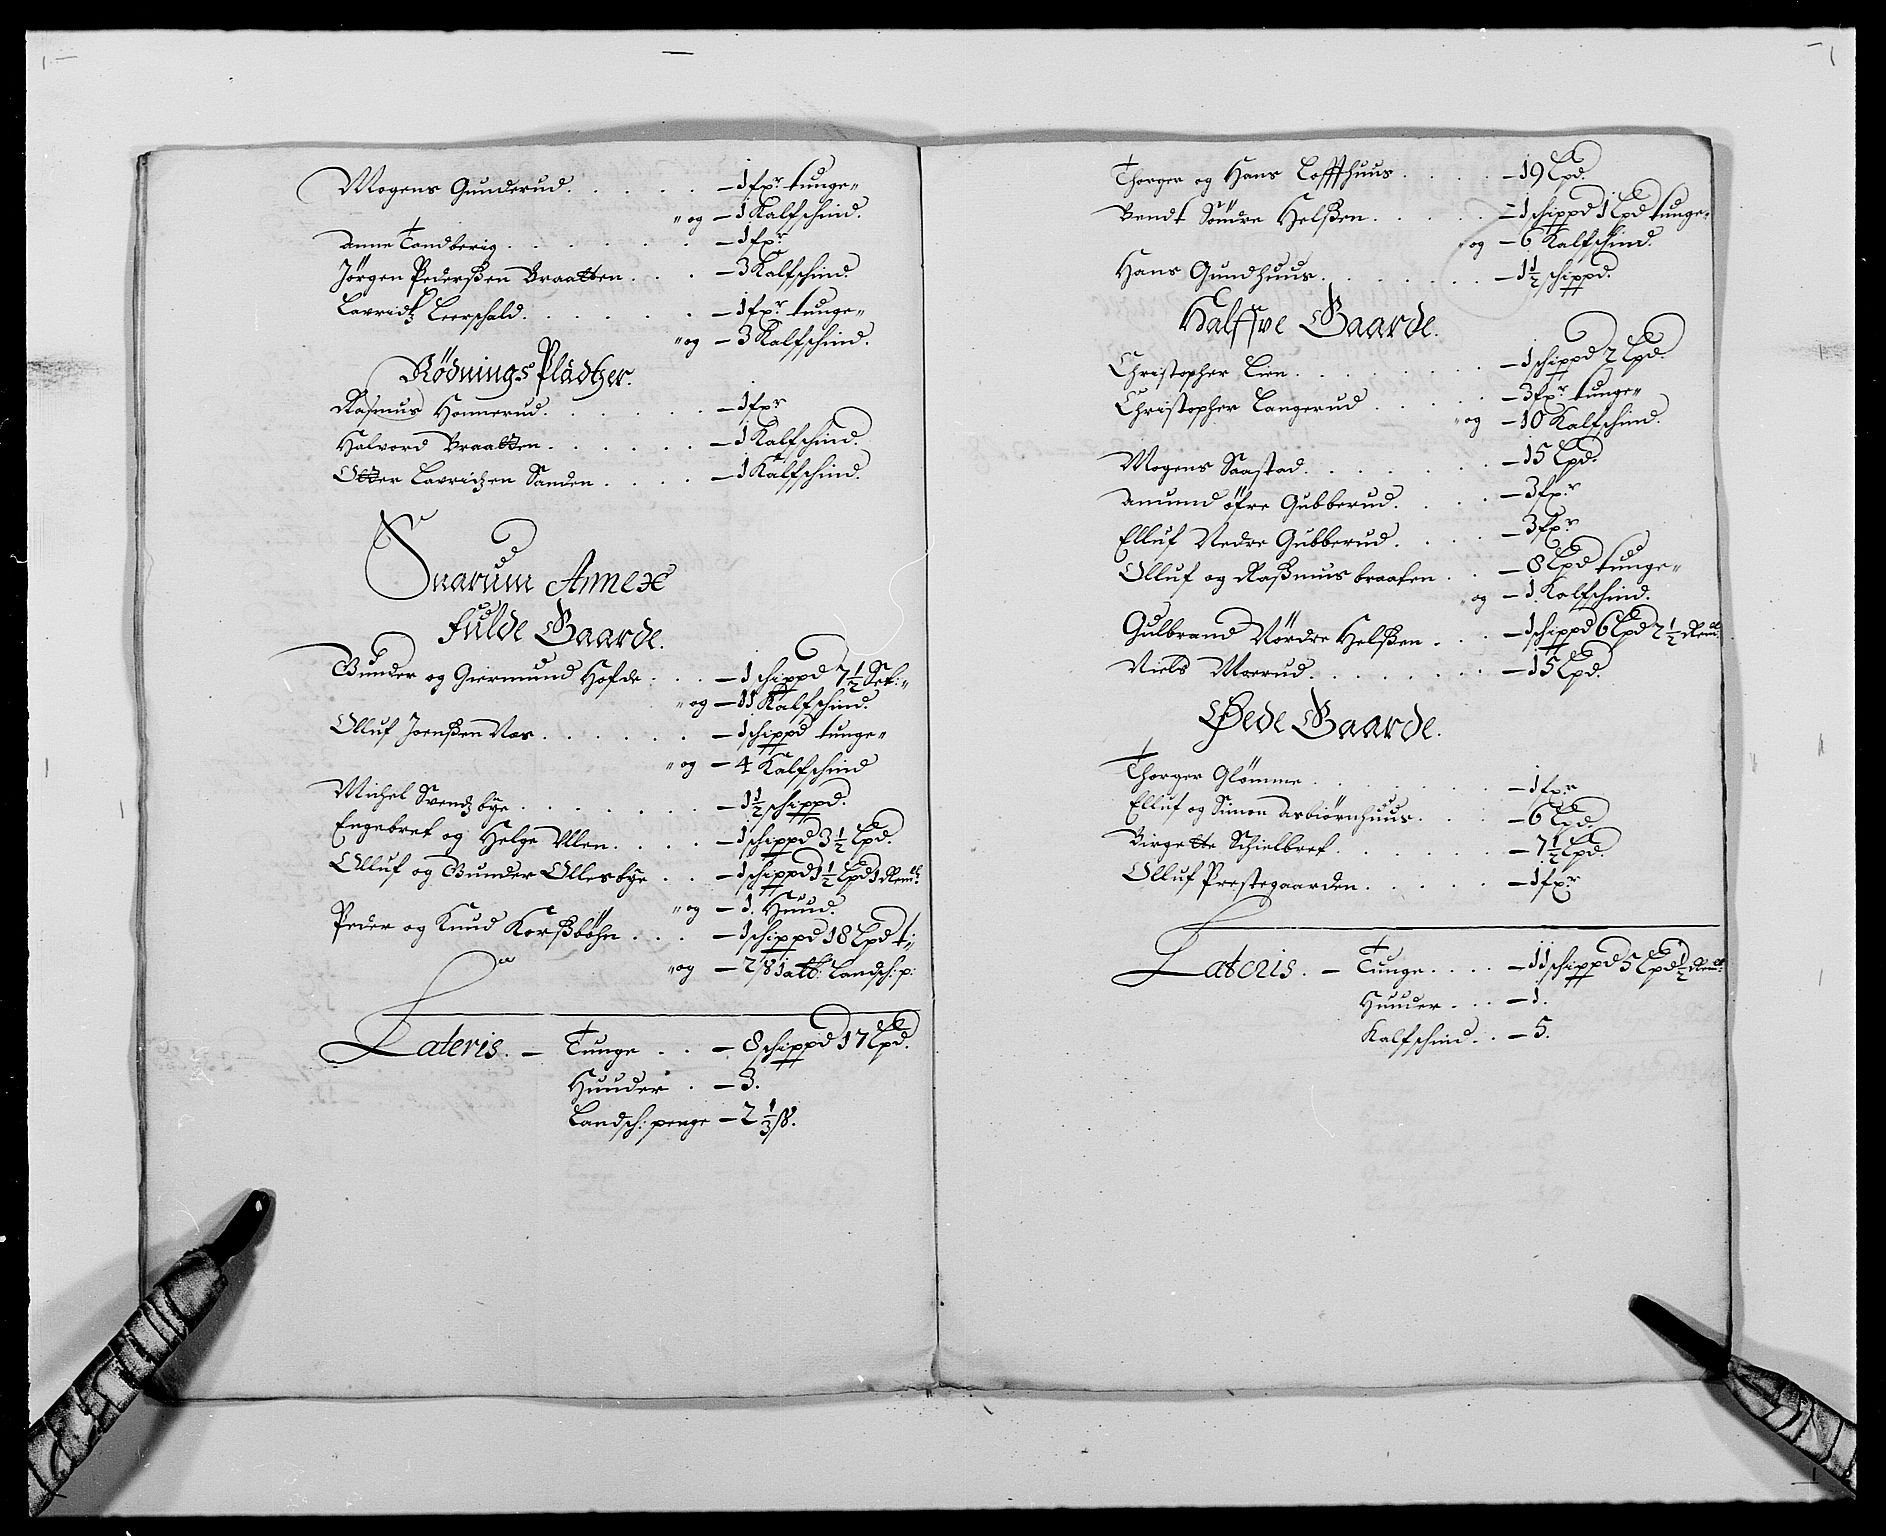 Mogens Gunderud. . . . . — 1 fxr tunge"
" og — 1 Kalfschind.
Anne Tandberig . . . . . . — 1 fxr
Jörgen Pederßen Braatten . . . — 3 Kalfschind.
Lavridtz Leerschald. . . . . . — 1 fxr tunge"
" og — 3 Kalfschind.
Rödnings Plädtzer.
Rasmus Honnerud. . . . . — 1 fxr
Halvord Braatten . . . . . — 1 Kalfschind.
Otter Lavridzen Sanden . . . . — 1 Kalfschind.
Snarum Annex
Fulde Gaarde.
Gunder og Giermund Hofde . . . — 1 schippd 7 1/2 Set:"
" og — 11 Kalfschind.
Olluf Joenßen Nas . . . . . . — 1 schippd tunge"
" og — 4 Kalfschind
Michel Svendz bye . . . . . . — 1 1/2 schippd.
Engebret og Helge Ullen . . . . — 1 schippd 3 1/2 Lpd.
Olluf og Gunder Ollesbye . . — 1 schippd 1 1/2 Lpd 1 Rem:
" og — 1. Huud.
Peder og Knud Korßböhn . . . . — 1 schippd 18 Lpd t:
" og — 2 ß 1 alb: Landsch: p:
Lateris. — Tunge . . . — 8 schippd 17 Lpd.
Huuder . — 3.
Landsch: penge — 2 1/3 ß.
Thorger og Hans Loffthuus . . . . — 19 Lpd.
Bendt Söndre Helßen . . . . . — 1 schippd 1 Lpd tunge"
" og — 6 Kalfschind.
Hans Gundhuus . . . . . . — 1 1/2 schippd.
Halffve Gaarde.
Christopher Lien . . . . . . — 1 schippd 2 Lpd
Christopher Langerud . . . . . — 3 fxr tunge"
" og — 10 Kalfschind.
Mogens Saastad . . . . . . — 15 Lpd.
Amund öfre Gubberud. . . . — 3 fxr
Elluf Nedre Gubberud. . . . — 3 fxr
Olluf og Raßmus braaten . . — 8 Lpd tunge"
" og — 1. Kalfschind.
Gulbrand Nördre Helßen . . . — 1 schippd 6 Lpd 2 1/2 Rem:
Niels Moerud . . . . . . . — 15 Lpd.
Øede Gaarde.
Thorger Glömme . . . . . . — 1 fxr
Elluf og Simon Asbiörnhuus . . . — 6 Lpd.
Birgette Schielbret . . . . . . — 7 1/2 Lpd.
Olluf Prestegaarden . . . . . — 1 fxr
Lateris. — Tunge . . . . — 11 schippd 5 Lpd 1/2 Rem:
Huuder . . . — 1.
Kalfschind . . — 5.